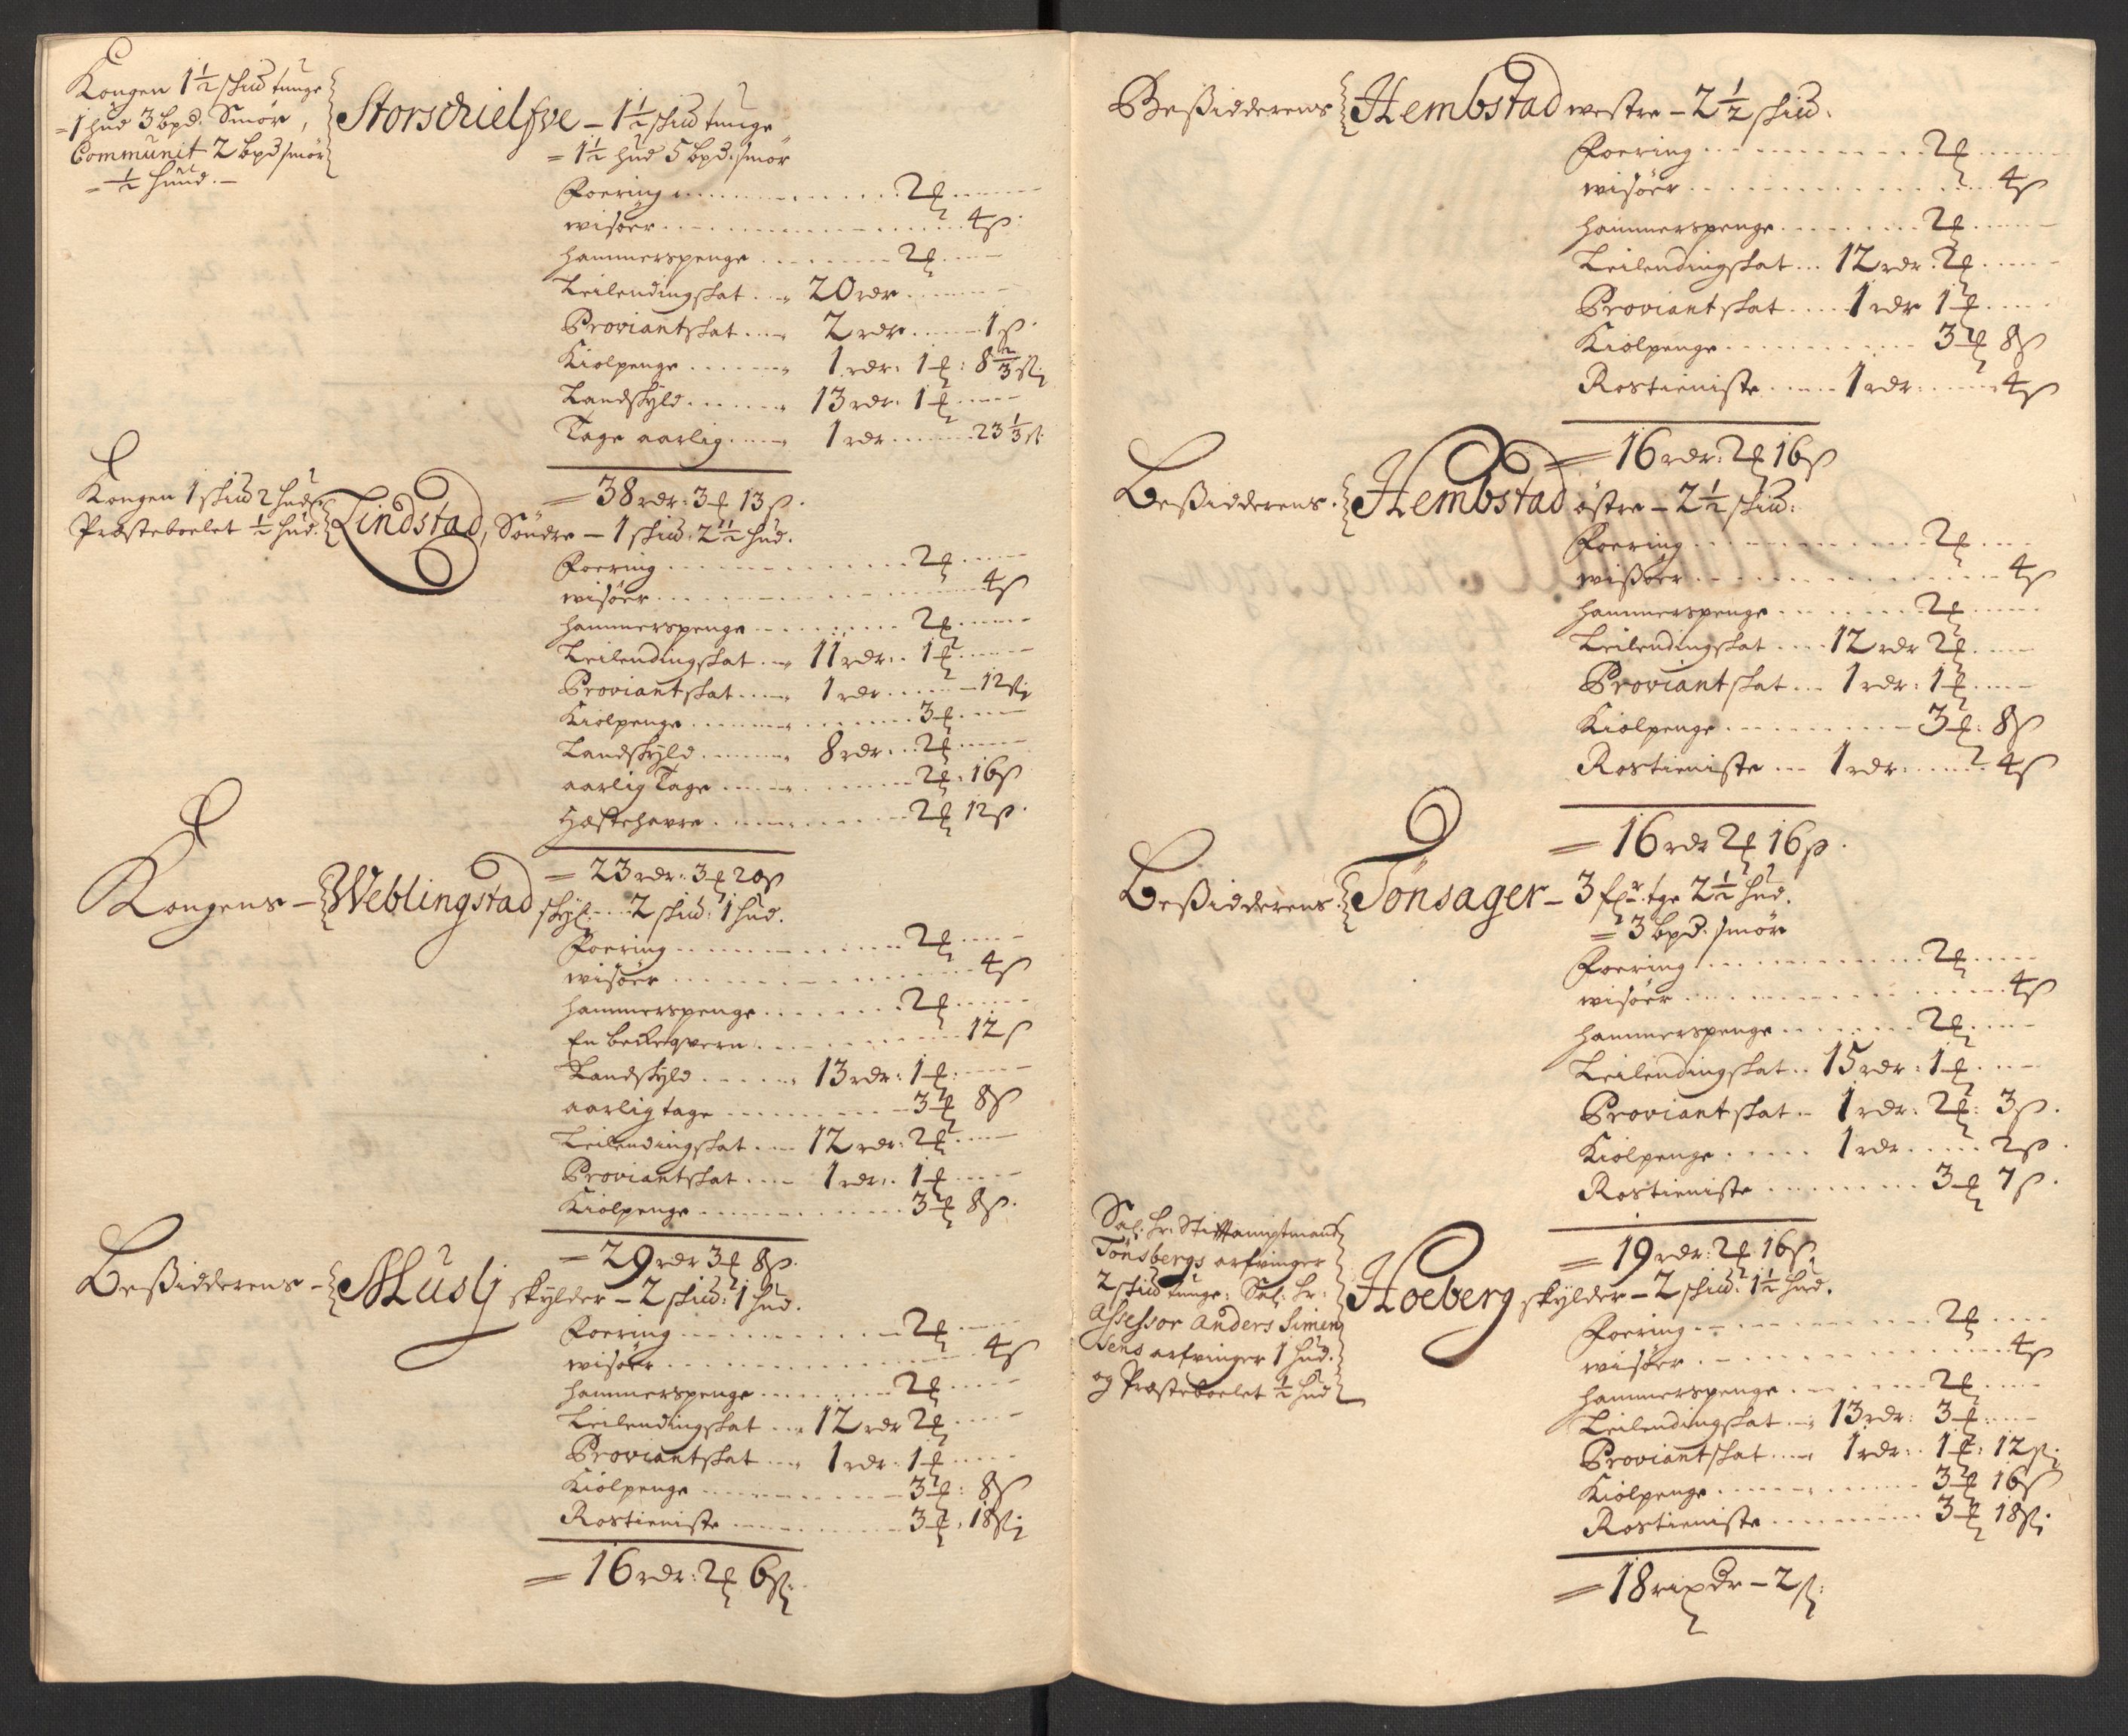 Kongen 1½ skiu tunge
=1 hud 3 bpd: Smör,
Communit 2 bpd smör
=½ hund.–
Storschielfve – 1½ skiu tunge
= 1½ hud 5 bpd: smör
Foering ........ 2 ₰ ....
wisöer ........ 4 ß
hammerspenge ........ 2 ₰ ....
Leilendingskat ... 20 rdr ....
Proviantskat ... 2 rdr ..... 1 ß
Kiolpenge ...... 1 rdr: 1 ₰: 8⅔ ß;
Landskyld ...... 13 rdr: 1 ₰ ....
Tage aarlig ..... 1 rdr ..... 23⅓ ß:
= 38 rdr: 3 ₰ 13 ß.
Kongen 1 skiu 2 hud
Præsteboelet ½ hud:
Lindstad, Söndre – 1 skiu: 2½ hud.
Foering ........ 2 ₰ ....
wisöer ........ 4 ß
hammerspenge ........ 2 ₰ ....
Leilendingskat ... 11 rdr: 1 ₰ ....
Proviantskat .... 1 rdr ..... 12 ß;
Kiolpenge ........ 3 ₰ ....
Landskyld ...... 8 rdr .. 2 ₰ ....
aarlig Tage ........ 2 ₰ : 16 ß
Hæstehavre ........ 2 ₰ 12 ß.
= 23 rdr: 3 ₰ 20 ß
Kongens – Weblingstad skyl .... 2 skiu: 1 hud.
Foering ........ 2 ₰ ....
wisöer ........ 4 ß
hammerspenge ........ 2 ₰ ....
En beckeqvern ........ 12 ß
Landskyld ...... 13 rdr: 1 ₰: ....
aarlig tage ........ 3 ₰ 8 ß
Leilendingskat .... 12 rdr: 2 ₰ ....
Proviantskat .... 1 rdr: 1 ₰ ....
Kiolpenge ........ 3 ₰ 8 ß.
= 29 rdr 3 ₰ 8 ß.
Beßidderens – Muslj skylder – 2 skiu: 1 hud.
Foering ........ 2 ₰ ....
wisöer ........ 4 ß
hammerspenge ........ 2 ₰ ....
Leilendingskat ... 12 rdr 2 ₰ ....
Proviantskat ... 1 rdr: 1 ₰ ....
Kiolpenge ........ 3 ₰: 8 ß
Rostieniste ........ 3 ₰, 18 ß;
= 16 rdr: 2 ₰ 6 ß;
Beßidderens Hembstad westre – 2½ skiu:
Foering ........ 2 ₰ ....
wisöer ........ 4 ß
hammerspenge ........ 2 ₰ ....
Leilendingskat ... 12 rdr: 2 ₰ ....
Proviantskat .... 1 rdr 1 ₰ ....
Kiolpenge ........ 3 ₰ 8 ß
Rostieniste ..... 1 rdr: ..... 4 ß
= 16 rdr: 2 ₰ 16 ß
Beßidderens. Hembstad östre – 2½ skiu:
Foering ........ 2 ₰ ....
wißöer ........ 4 ß
hammerspenge ........ 2 ₰ ....
Leilendingskat .... 12 rdr 2 ₰ ....
Proviantskat ... 1 rdr: 1 ₰ ....
Kiolpenge ........ 3 ₰: 8 ß
Rostieniste ... 1 rdr: ..... 4 ß
= 16 rdr 2 ₰ 16 ß.
Beßidderens: Tönsager – 3 fr tge 2½ hud.
= 3 bpd: smör
Foering ........ 2 ₰ ....
wisöer ........ 4 ß
hammerspenge ........ 2 ₰ ....
Leilendingskat .. 15 rdr: 1 ₰ ....
Proviantskat .. 1 rdr: 2 ₰: 3 ß.
Kiolpenge ..... 1 rdr ..... 2 ß
Rostieniste ........ 3 ₰ 7 ß.
= 19 rdr: 2 ₰ 16 ß,
Sal: hr: Stiftamptmand
Tönsbergs arfvinger
2 skiu tunge: Sal: hr:
Assessor Anders Simen
sens arfvinger 1 hud:
og Præsteboelet ½ hud
Hoeberg skylder – 2 skiu: 1½ hud.
Foering ........ 2 ₰ ....
wisöer ........ 4 ß
hammerspenge ........ 2 ₰ ....
Leilendingskat ... 13 rdr: 3 ₰: ....
Proviantskat .... 1 rdr: 1 ₰: 12 ß;
Kiolpenge ........ 3 ₰ 16 ß
Rostieniste ........ 3 ₰ 18 ß;
= 18 rixdr – 2 ß;